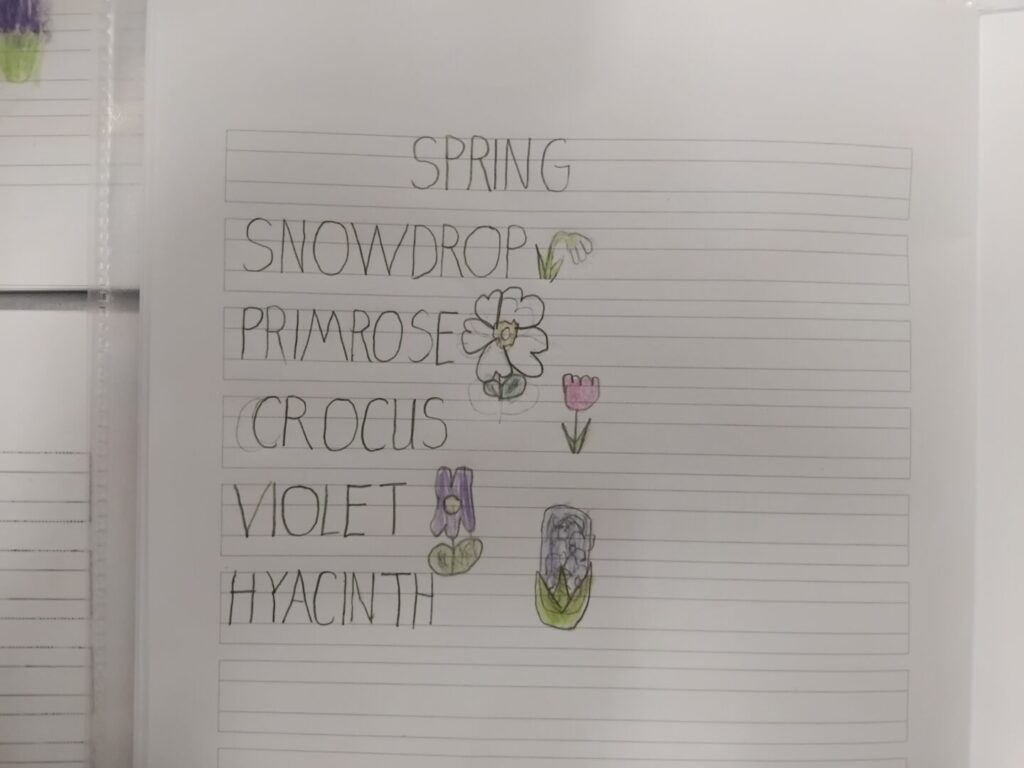 SPRING
SNOWDROP
PRIMROSE
CROCUS
VIOLET
HYACINTH